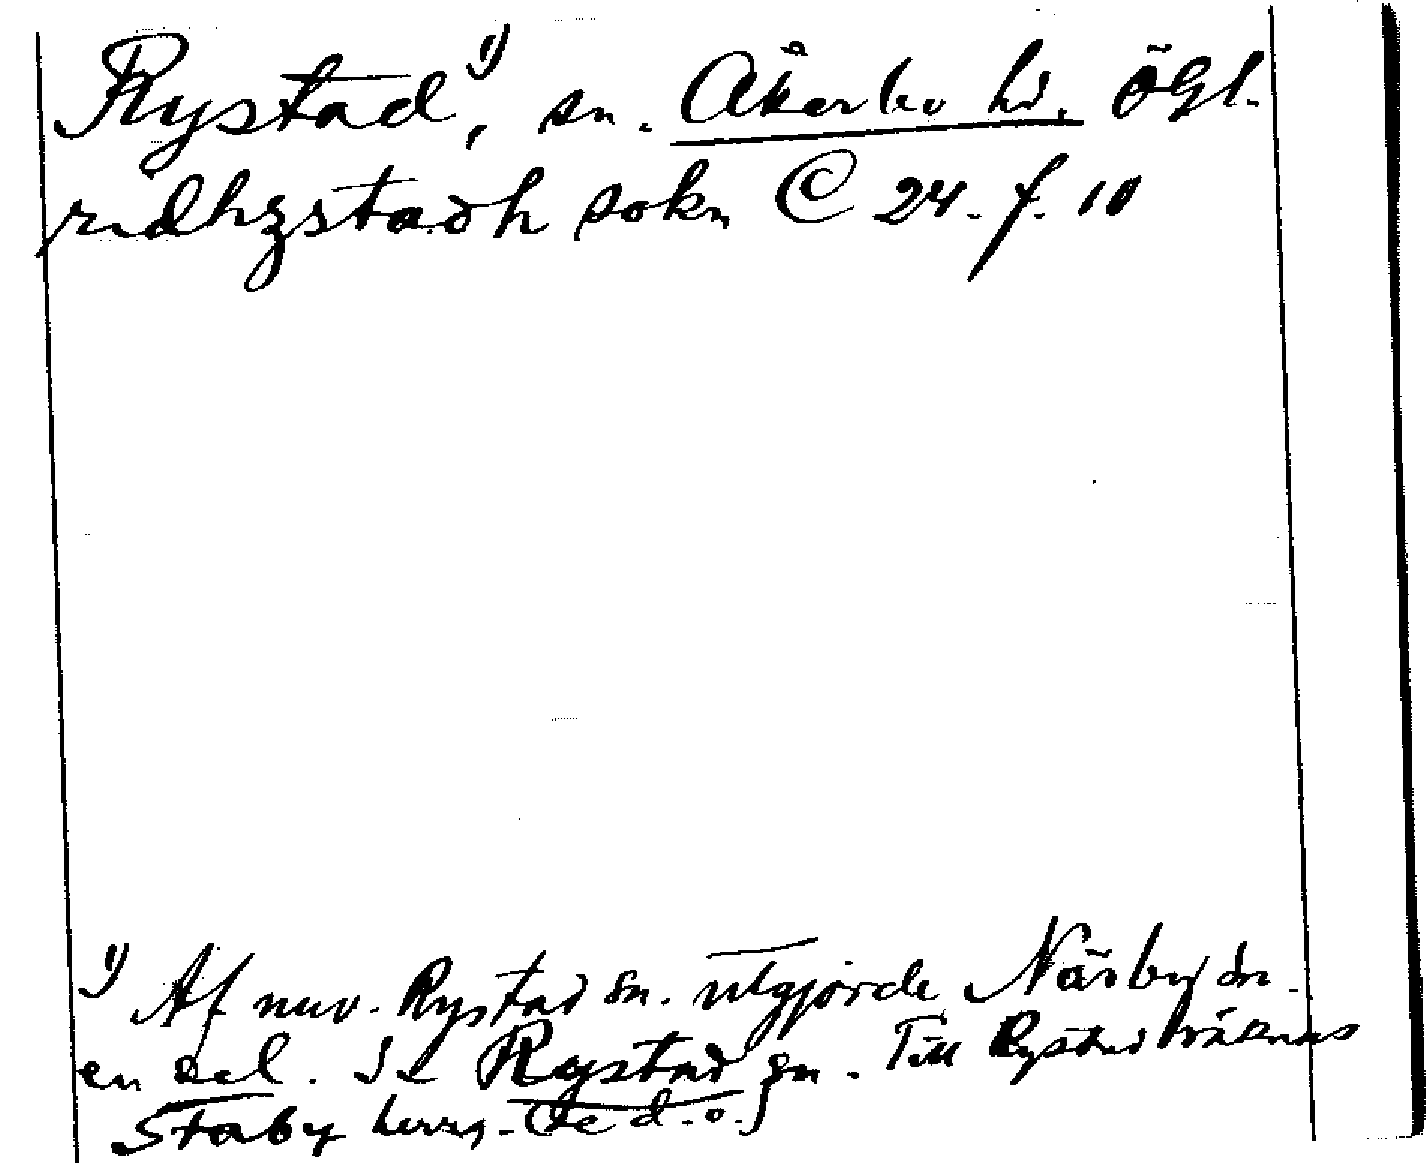 Rystad¹⁾, sn. Åkerbo hd. ÖGtl.
ridhzstadh sokn C 24. f. 10
¹⁾ Af nuv. Rystad sn. utgjorde Näsby sn.
en del. Se Rystad sn. Till Rystad räknas
Staby herrg. (se d. o.)